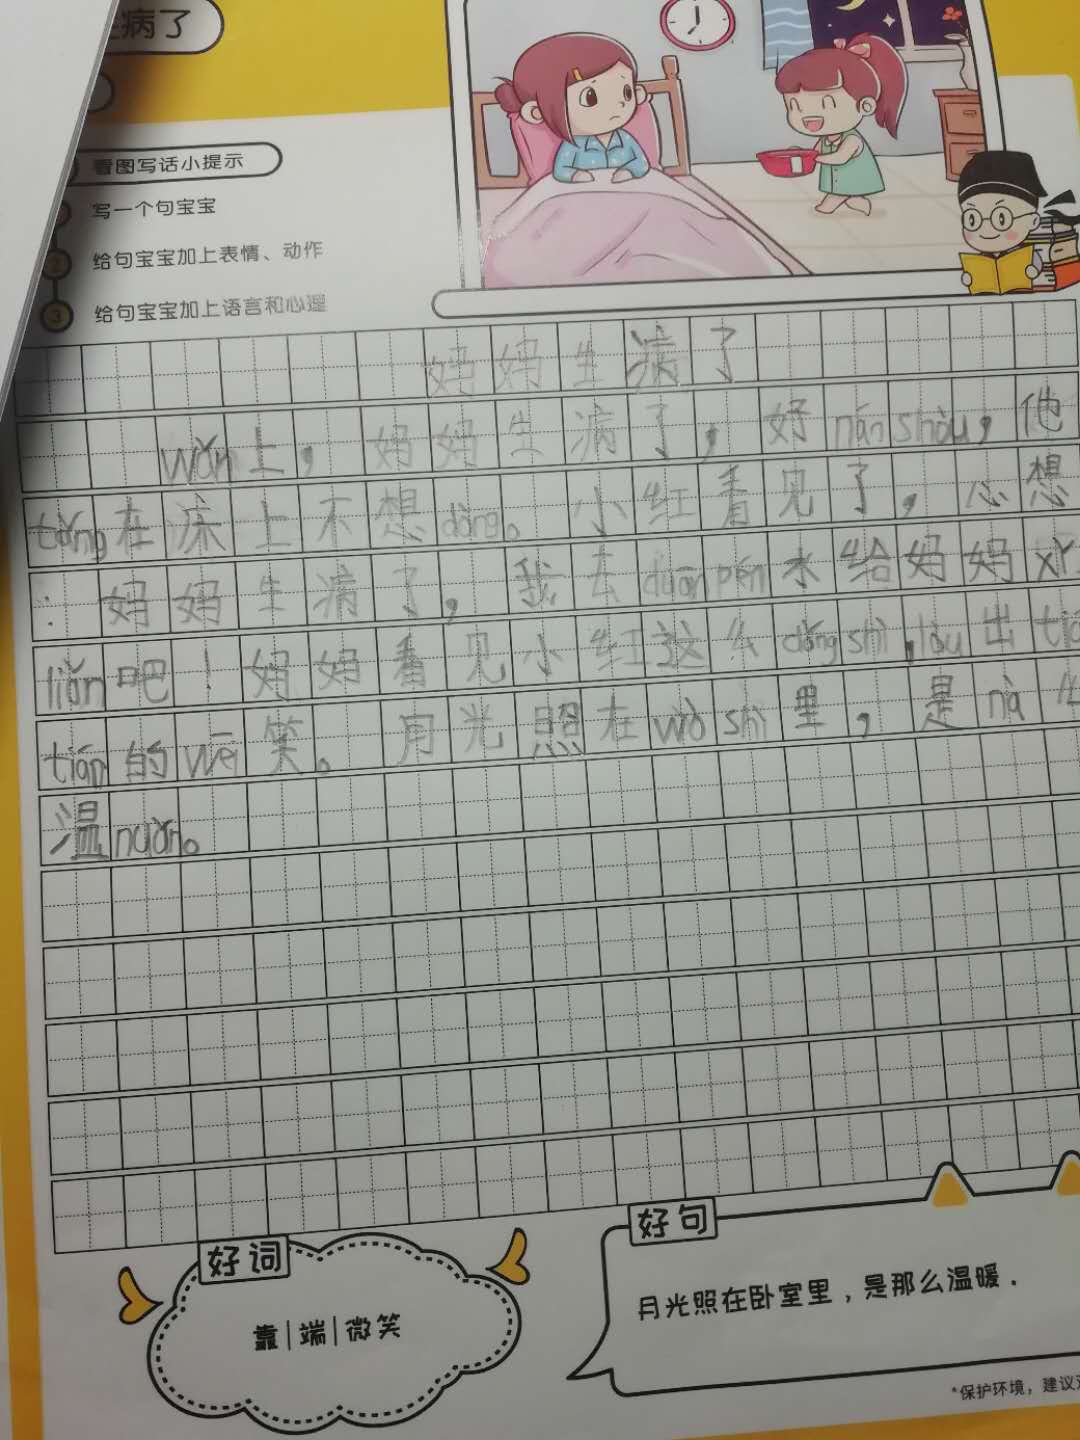 病了
看图写话小提示
写一个句宝宝
2 给句宝宝加上表情、动作
3 给句宝宝加上语言和心理
妈妈生病了
wǎn上，妈妈生病了，好nán shòu，他
tǎng在床上不想dòng。小红看见了，心想
：妈妈生病了，我去duān pén水给妈妈xǐ
liǎn吧！妈妈看见小红这么dǒng shì，lòu出
tián的wēi笑。月光照在wò shì里，是nà么
温nuǎn。
好词
靠|端|微笑
好句
月光照在卧室里，是那么温暖.
*保护环境，建议